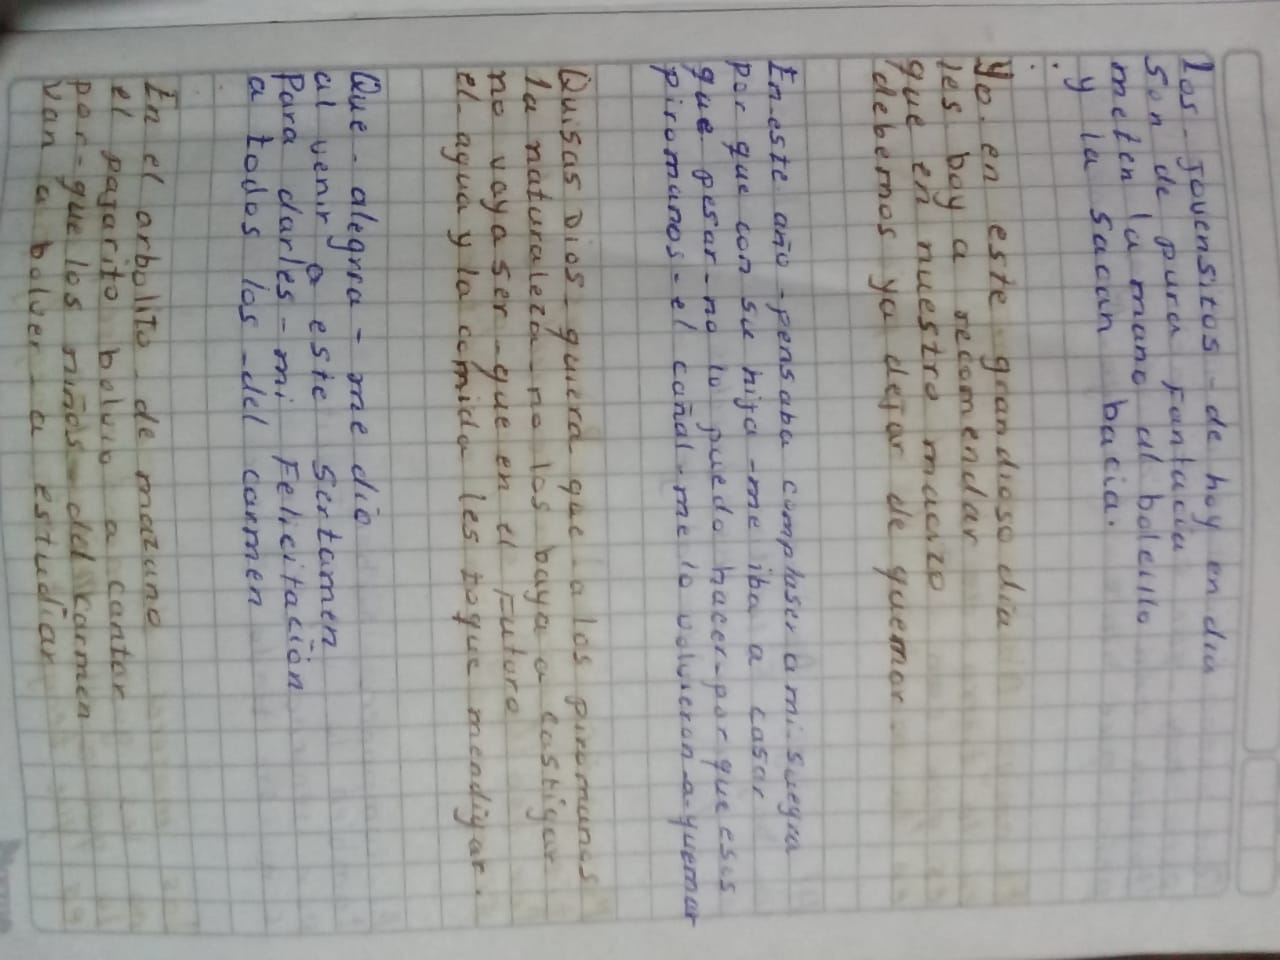 los - jovensitos - de hoy en dia
son de pura fantacia
meten la mano al bolcillo
y la sacan bacia.
Yo. en este grandioso dia
les boy a recomendar
que en nuestro macizo
debemos ya dejar de quemar.
En este año - pensaba complaser a mi. suegra
por que con su hija - me iba a casar
que pesar - no lo puedo hacer - por que esos
piromanos - el cañal - me lo volvieron a - quemar
Quisas Dios - quiera que a los piromanos
la naturaleza - no los baya a castigar
no vaya ser - que en el futuro
el - agua y la comida les toque mendigar.
Que - alegria - me dio
al venir a este Sertamen
Para darles - mi Felicitación
a todos los - del carmen
En el arbolito - de mazuno
el pajarito bolvio a cantar
por - que los niños - del carmen
van a bolver - a estudiar